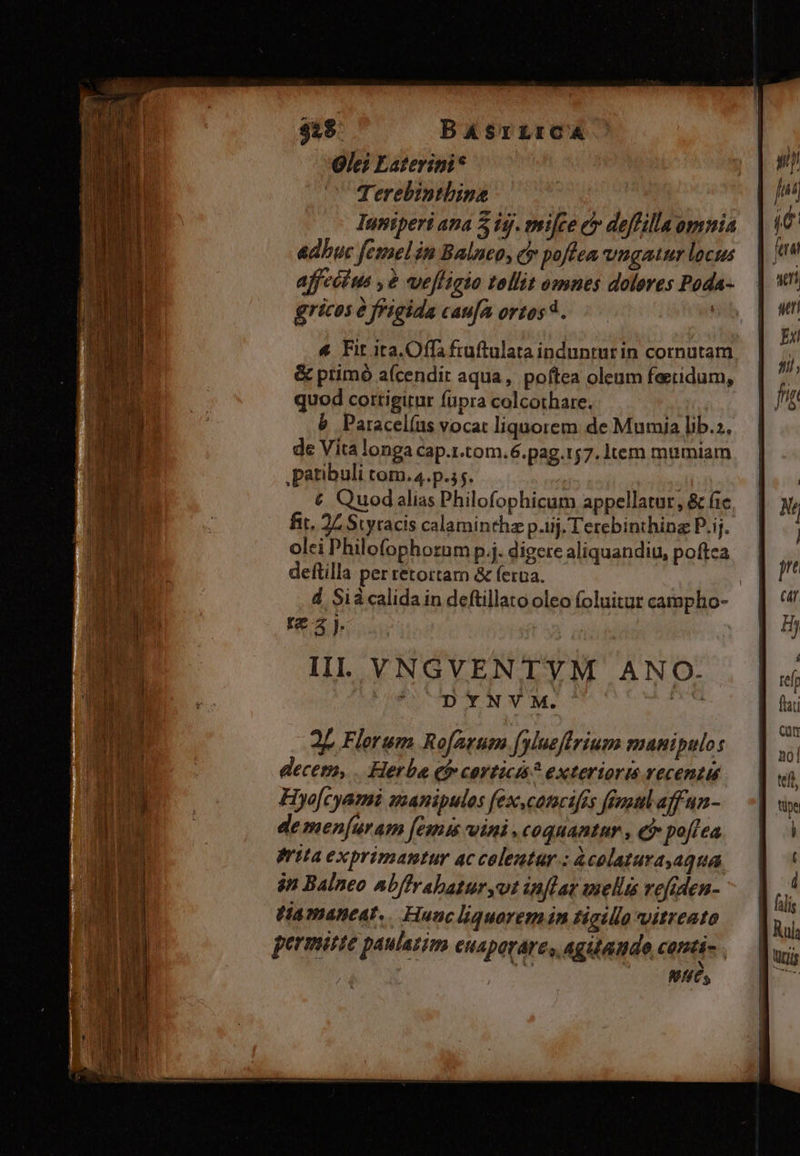 528 BASILICA
Olei Laterini ᶜ
Terebinthina
Iuniperi ana ℥ iij. misce & destilla omnia
adhuc semel in Balneo, & postea vngatur locus
affectus, è vestigio tollit omnes dolores Poda-
gricos è frigida causa ortos ᵈ.
a Fit ita. Ossa frustulata induntur in cornutam
& primò ascendit aqua, postea oleum fœtidum,
quod corrigitur supra colcothare.
b Paracelsus vocat liquorem de Mumia lib.2.
de Vita longa cap.1.tom.6.pag.157. Item mumiam
patibuli tom.4.p.35.
c Quod alias Philosophicum appellatur, & sic
fit. ℞ Styracis calaminthæ p.iij. Terebinthinæ P.ij.
olei Philosophorum p.j. digere aliquandiu, postea
destilla per retortam & serua.
d Si à calida in destillato oleo soluitur campho-
ræ ʒ j.
III. VNGVENTVM ANO-
DYNVM.
℞ Florum Rosarum syluestrium manipulos
decem, Herbæ & corticis ᵃ exterioris recentis
Hyoscyami manipulos sex, concisis simul affun-
de mensuram semis vini, coquantur, & postea
trita exprimantur ac colentur: à colatura, aqua
in Balneo abstrahatur, vt instar mellis residen-
tia maneat. Hunc liquorem in tigillo vitreato
permitte paulatim euaporare, agitando conti-
nuè,